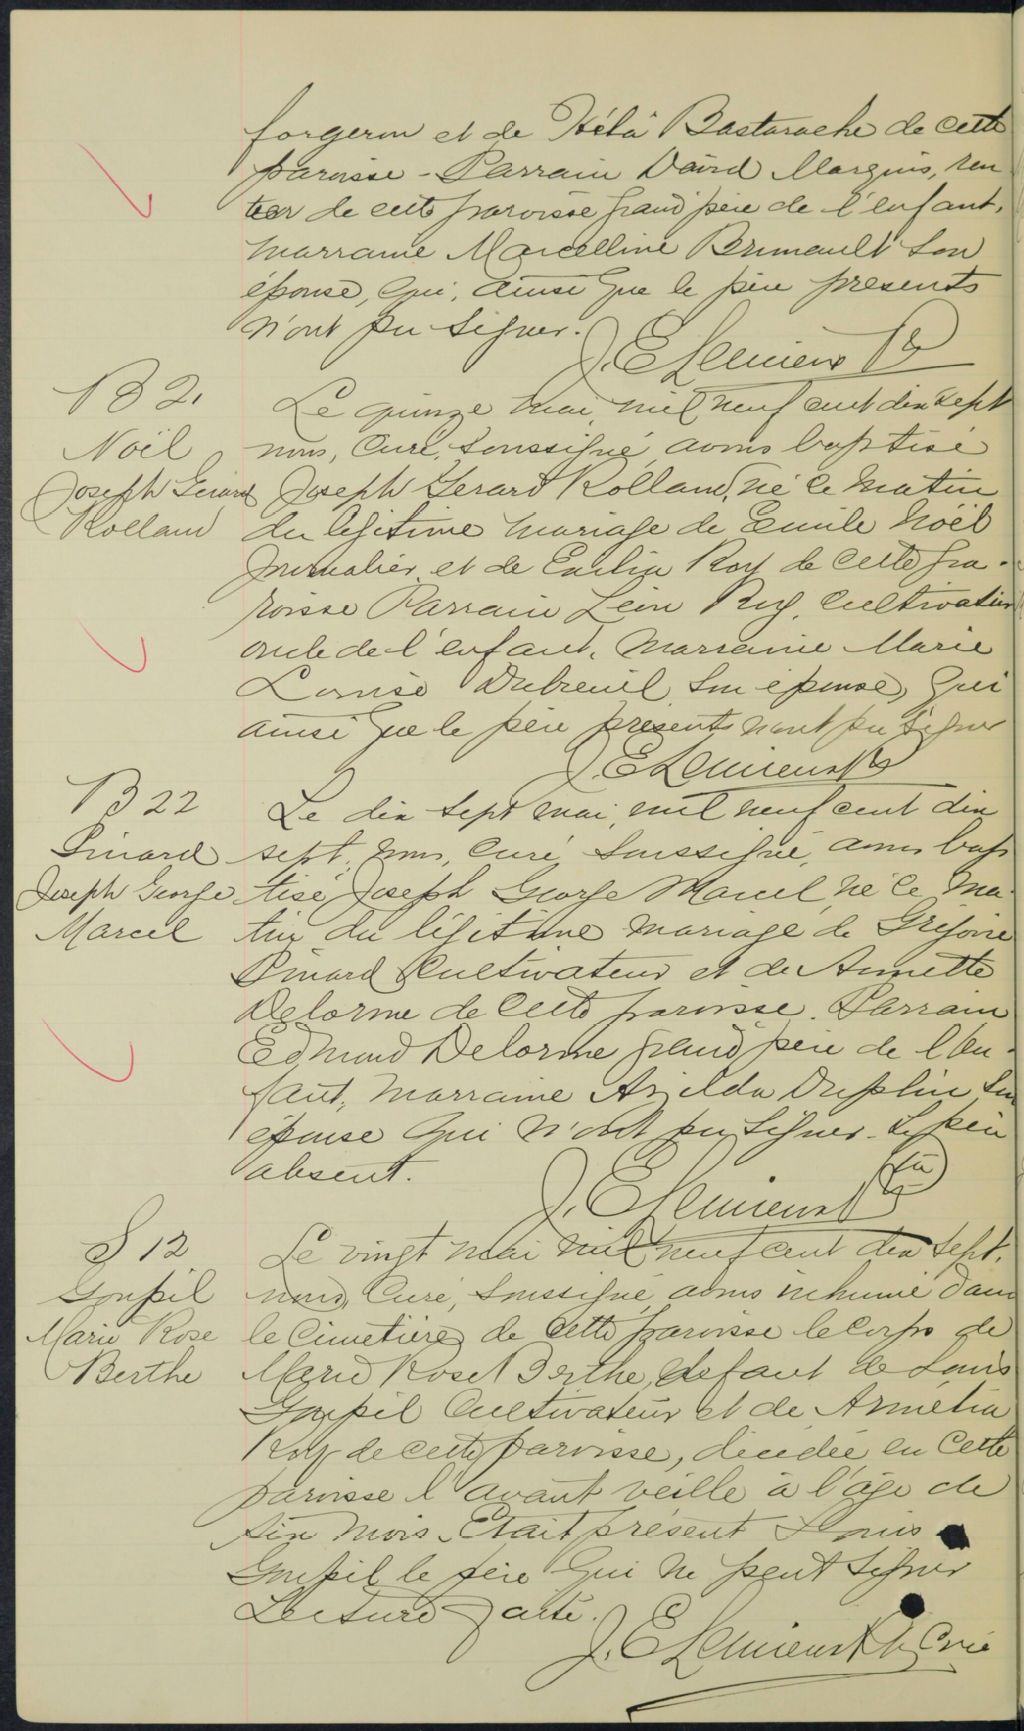 forgeron et de Bastarache de cette
paroisse - Parrain David Marquis, ren
tier de cette paroisse grand'père de l'enfant.
marraine Marcelline son
épouse, qui, ainsi que le père presents
n'ont pu signer.
J. E Lemieux Ptr
B 2.
Noël
Joseph Gérard
Rolland
Le quinze mai, mil neuf cent dix sept
nous, Curé, soussigné, avons baptisé
Joseph Gerard Rolland, né ce matin
du légitime mariage de Emile Noël
journalier et de Emilia Roy de cette pa-
roisse Parrain Léon Roy, Cultivateur
oncle de l'enfant, marraine Marie
Louise Dubreuil son épouse, qui
ainsi que le père présents n'ont pu signer
J. E Lemieux Ptr
B 22
Pinard
Joseph George
Marcel
Le dix sept mai, mil neuf cent dix
sept, nous, curé, soussigné, avons bap
tisé Joseph George Marcel, né ce ma-
tin du légitime mariage de Grégoire
Pinard Cultivateur et de Annette
Delorme de cette paroisse. Parrain
Edmond Delorme grand'père de l'en-
fant, marraine Azilda son
épouse qui n'ont pu signer. Le père
absent.
J. E Lemieux Ptr
S 12
Goupil
Marie Rose
Berthe
Le vingt mai mil neuf cent dix sept,
nous, Curé, soussigné, avons inhumé dans
le Cimetière de cette paroisse le corps de
Marie Rose Berthe, enfant de Louis
Goupil Cultivateur et de
Roy de cette paroisse, décédée en cette
paroisse l'avant veille à l'âge de
six mois. Etait présent Louis
Goupil le père qui ne peut signer
Lecture faite.
J. E Lemieux Ptr Curé